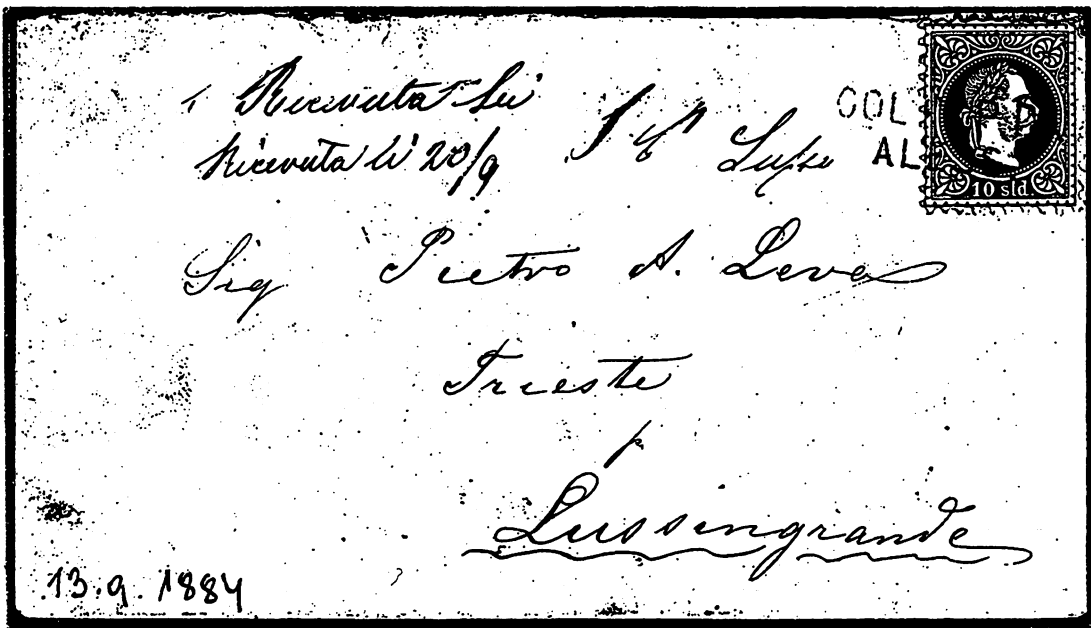 Ricevuta li
Ricevuta li 20/9
COL
AL
10 sld.
Sig Pietro A. Leva
Trieste
p
Lussingrande
13.9.1884